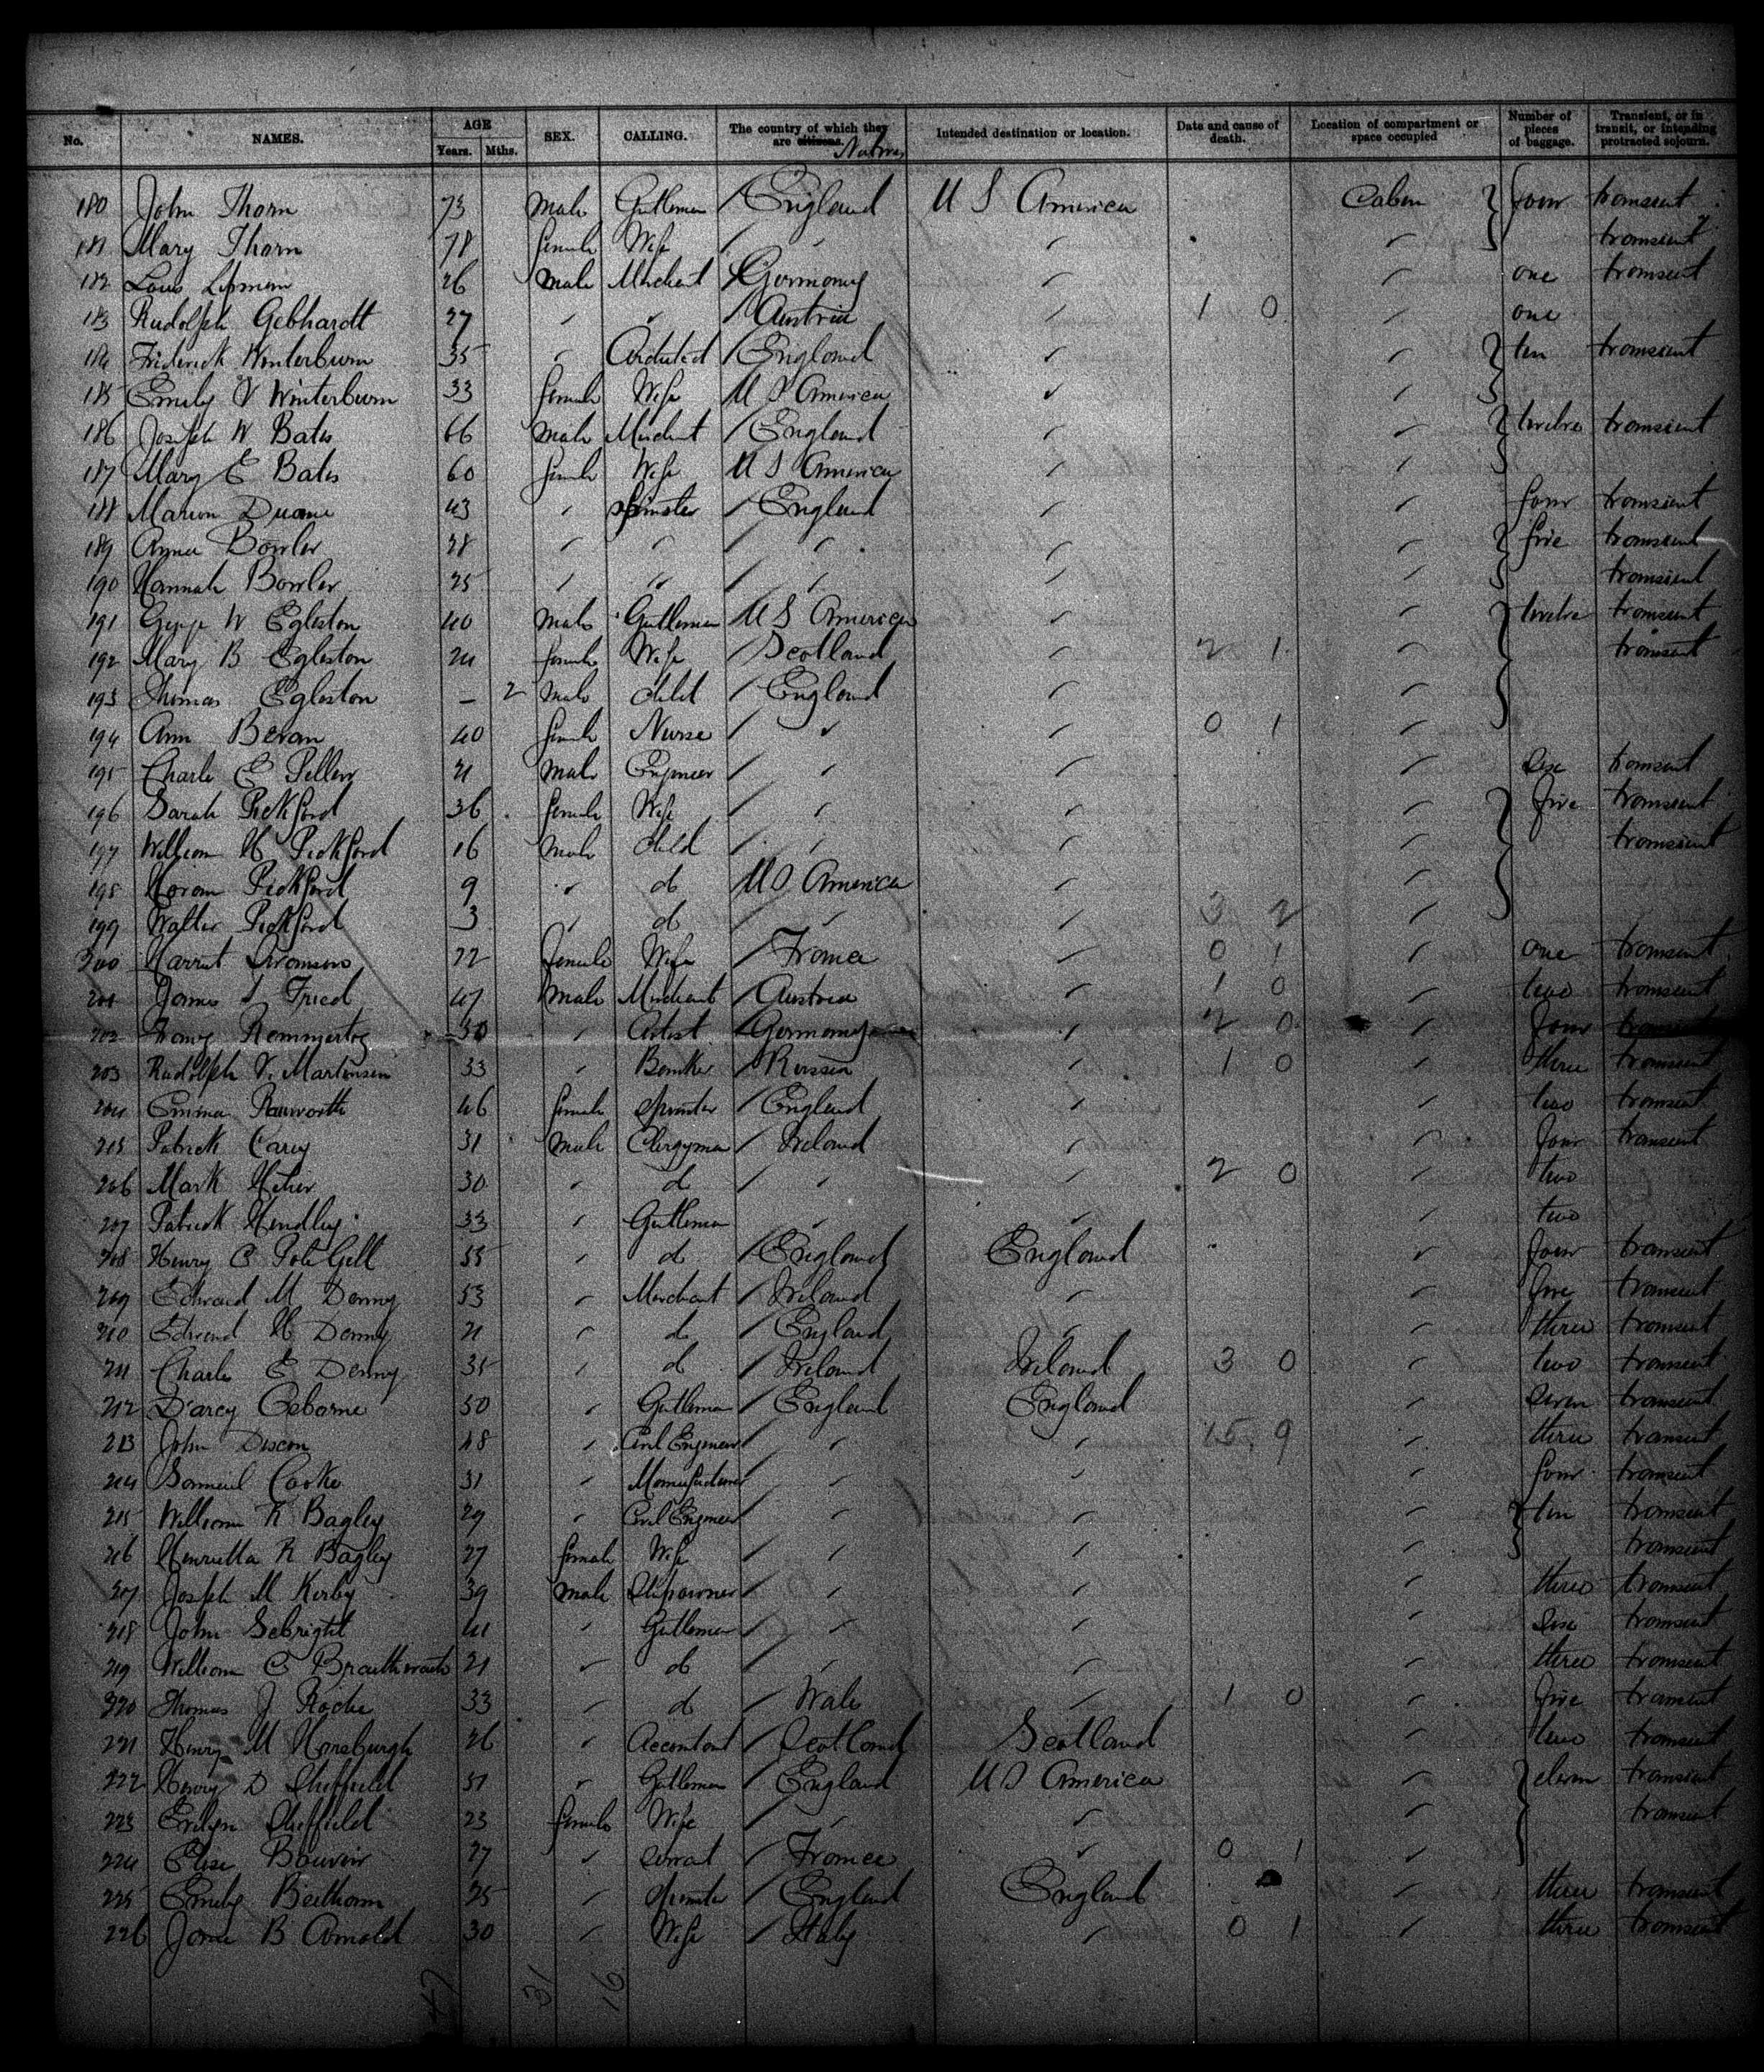 No. NAMES. AGE Years. Mths. SEX. CALLING. The country of which they are citizens. Natives Intended destination or location. Date and cause of death. Location of compartment or space occupied Number of pieces of baggage. Transient, or in transit, or intending protracted sojourn.
180 John Thorn 73 male Gentleman / England U S America Cabin four transient
181 Mary Thorn 78 female Wife / / / / transient
182 26 male Merchant Germany / / one transient
183 Rudolph Gebhardt 27 / / / Austria / 1 0 / one
184 Frederick Winterburn 35 / Architect / England / / ten transient
185 Emily V Winterburn 33 female Wife U S America / /
186 Joseph W Bates 66 male Merchant / England / / twelve transient
187 Mary E Bates 60 female Wife U S America / /
188 Marion Duane 43 / Spinster / England / / four transient
189 Anna Bowler 28 / / / / / / five transient
190 Hannah Bowler 25 / / / / / / transient
191 George W Egleston 40 male Gentleman U S America / / twelve transient
192 Mary B Egleston 24 female Wife / Scotland / 2 1 / transient
193 Thomas Egleston – 2 male child / England / /
194 Ann Bevan 40 female Nurse / / / 0 1 /
195 Charles E Pellew 21 male Engineer / / / / six transient
196 Sarah Pickford 36 female Wife / / / / five transient
197 William H Pickford 16 male child / / / / transient
198 Pickford 9 / do U S America / /
199 Walter Pickford 3 / do / / 3 2 /
200 Harriet 22 female Wife / France / 0 1 / one transient
201 James S Fried 47 male Merchant / Austria / 1 0 / two transient
202 30 / Artist / Germany / 2 0 / four
203 Rudolph V. Martinsen 33 / Banker / Russia / 1 0 / three transient
204 Emma 46 female Spinster / England / / two transient
205 Patrick Carey 31 male Clergyman / Ireland / / four transient
206 Mark 30 / do / / / 2 0 / two
207 Patrick Hendley 33 / Gentleman / / / two
208 Henry C PoteGill 55 / do / England England / four transient
209 Edward M Denny 53 / Merchant / Ireland / / five transient
210 Edward H Denny 21 / do / England / / three transient
211 Charles E Denny 35 / do / Ireland Ireland 3 0 / two transient
212 D'arcy Osborne 50 / Gentleman / England England / seven transient
213 John 48 / Civil Engineer / / / 15 9 / three transient
214 Samuel Cooke 31 / Manufacturer / / / / four transient
215 William R Bagley 29 / Civil Engineer / / / / ten transient
216 Henrietta R Bagley 27 female Wife / / / / transient
217 Joseph M Kirby 39 male Shipowner / / / / three transient
218 John Sebright 41 / Gentleman / / / / six transient
219 William C Braithwaite 21 / do / / / / three transient
220 Thomas J Roche 33 / do / Wales / 1 0 / five transient
221 Henry M Horsburgh 26 / Accountant / Scotland Scotland / two transient
222 Henry D Sheffield 51 / Gentleman / England U S America / eleven transient
223 Evelyn Sheffield 23 female Wife / / / / transient
224 Elise 27 / Servant / France / 0 1 /
225 Emily 25 / Spinster / England England / three transient
226 Jane B Arnold 30 / Wife / Italy / 0 1 / three transient
47 31 16